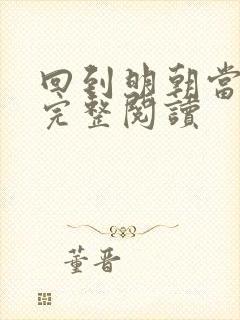 回到明朝當
完整閱讀
董晋